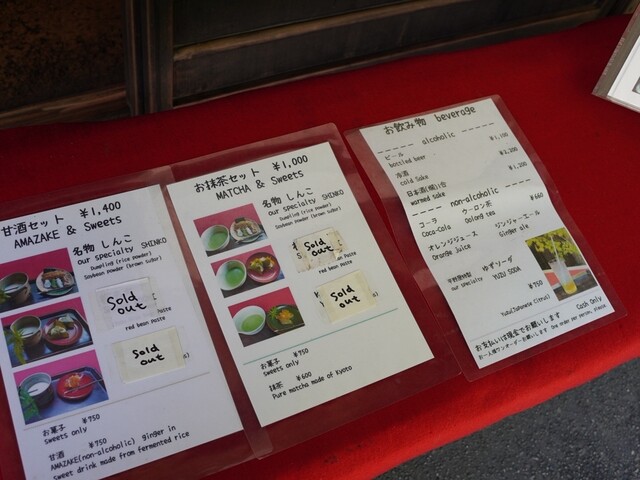 甘酒セット ¥1,400
AMAZAKE & Sweets
名物 しんこ
our specialty SHINKO
Dumpling (rice powder)
Soybean powder (brown sugar)
Sold out
red bean paste
Sold out
お菓子 ¥750
sweets only
甘酒 ¥750
AMAZAKE(non-alcoholic) ginger in
sweet drink made from fermented rice
お抹茶セット ¥1,000
MATCHA & Sweets
名物 しんこ
our specialty SHINKO
Dumpling (rice powder)
Soybean powder (brown sugar)
Sold out
red bean paste
Sold out
red bean paste
お菓子 ¥750
sweets only
抹茶 ¥600
Pure matcha made of Kyoto
お飲み物 beverage
alcoholic
ビール ¥1,100
bottled beer
冷酒 ¥2,200
cold Sake
日本酒(燗)1合 ¥1,200
warmed Sake
non-alcoholic
コーラ ウーロン茶 ¥660
Coca-Cola Oolong tea
オレンジジュース ジンジャーエール
Orange juice Ginger ale
ゆずソーダ ¥750
our specialty YUZU SODA
Yuzu(Japanese Citrus)
Cash Only
お支払いは現金でお願いします
お一人様ワンオーダーお願いします One order per person, please